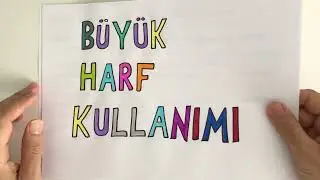 BÜYÜK
HARF
KULLANIMI